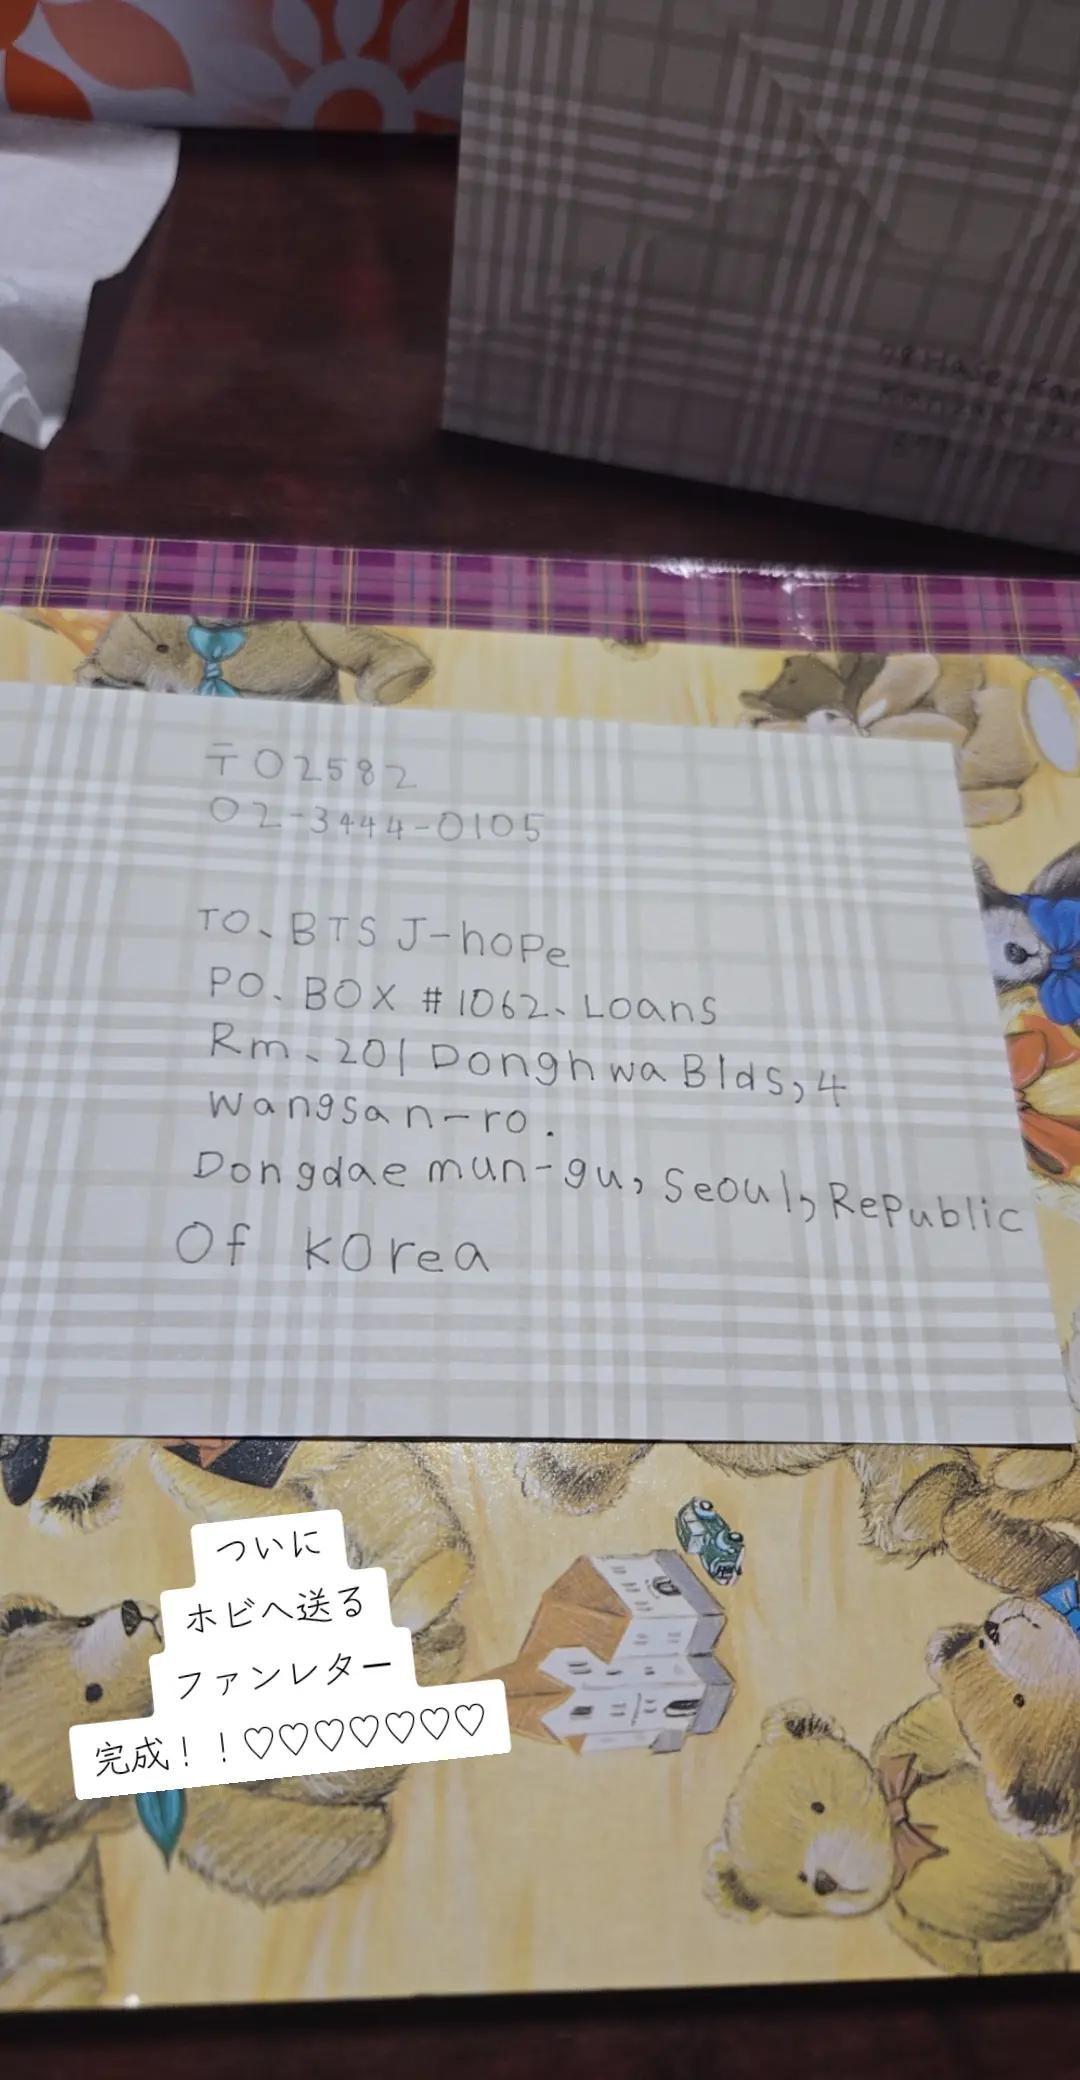 〒02582
02-3444-0105
TO、BTS J-hope
PO、BOX #1062、Loans
Rm、201 Donghwa Blds,4
Wangsan-ro.
Dongdaemun-gu, Seoul, Republic
Of Korea
ついに
ホビへ送る
ファンレター
完成！！♡♡♡♡♡♡♡